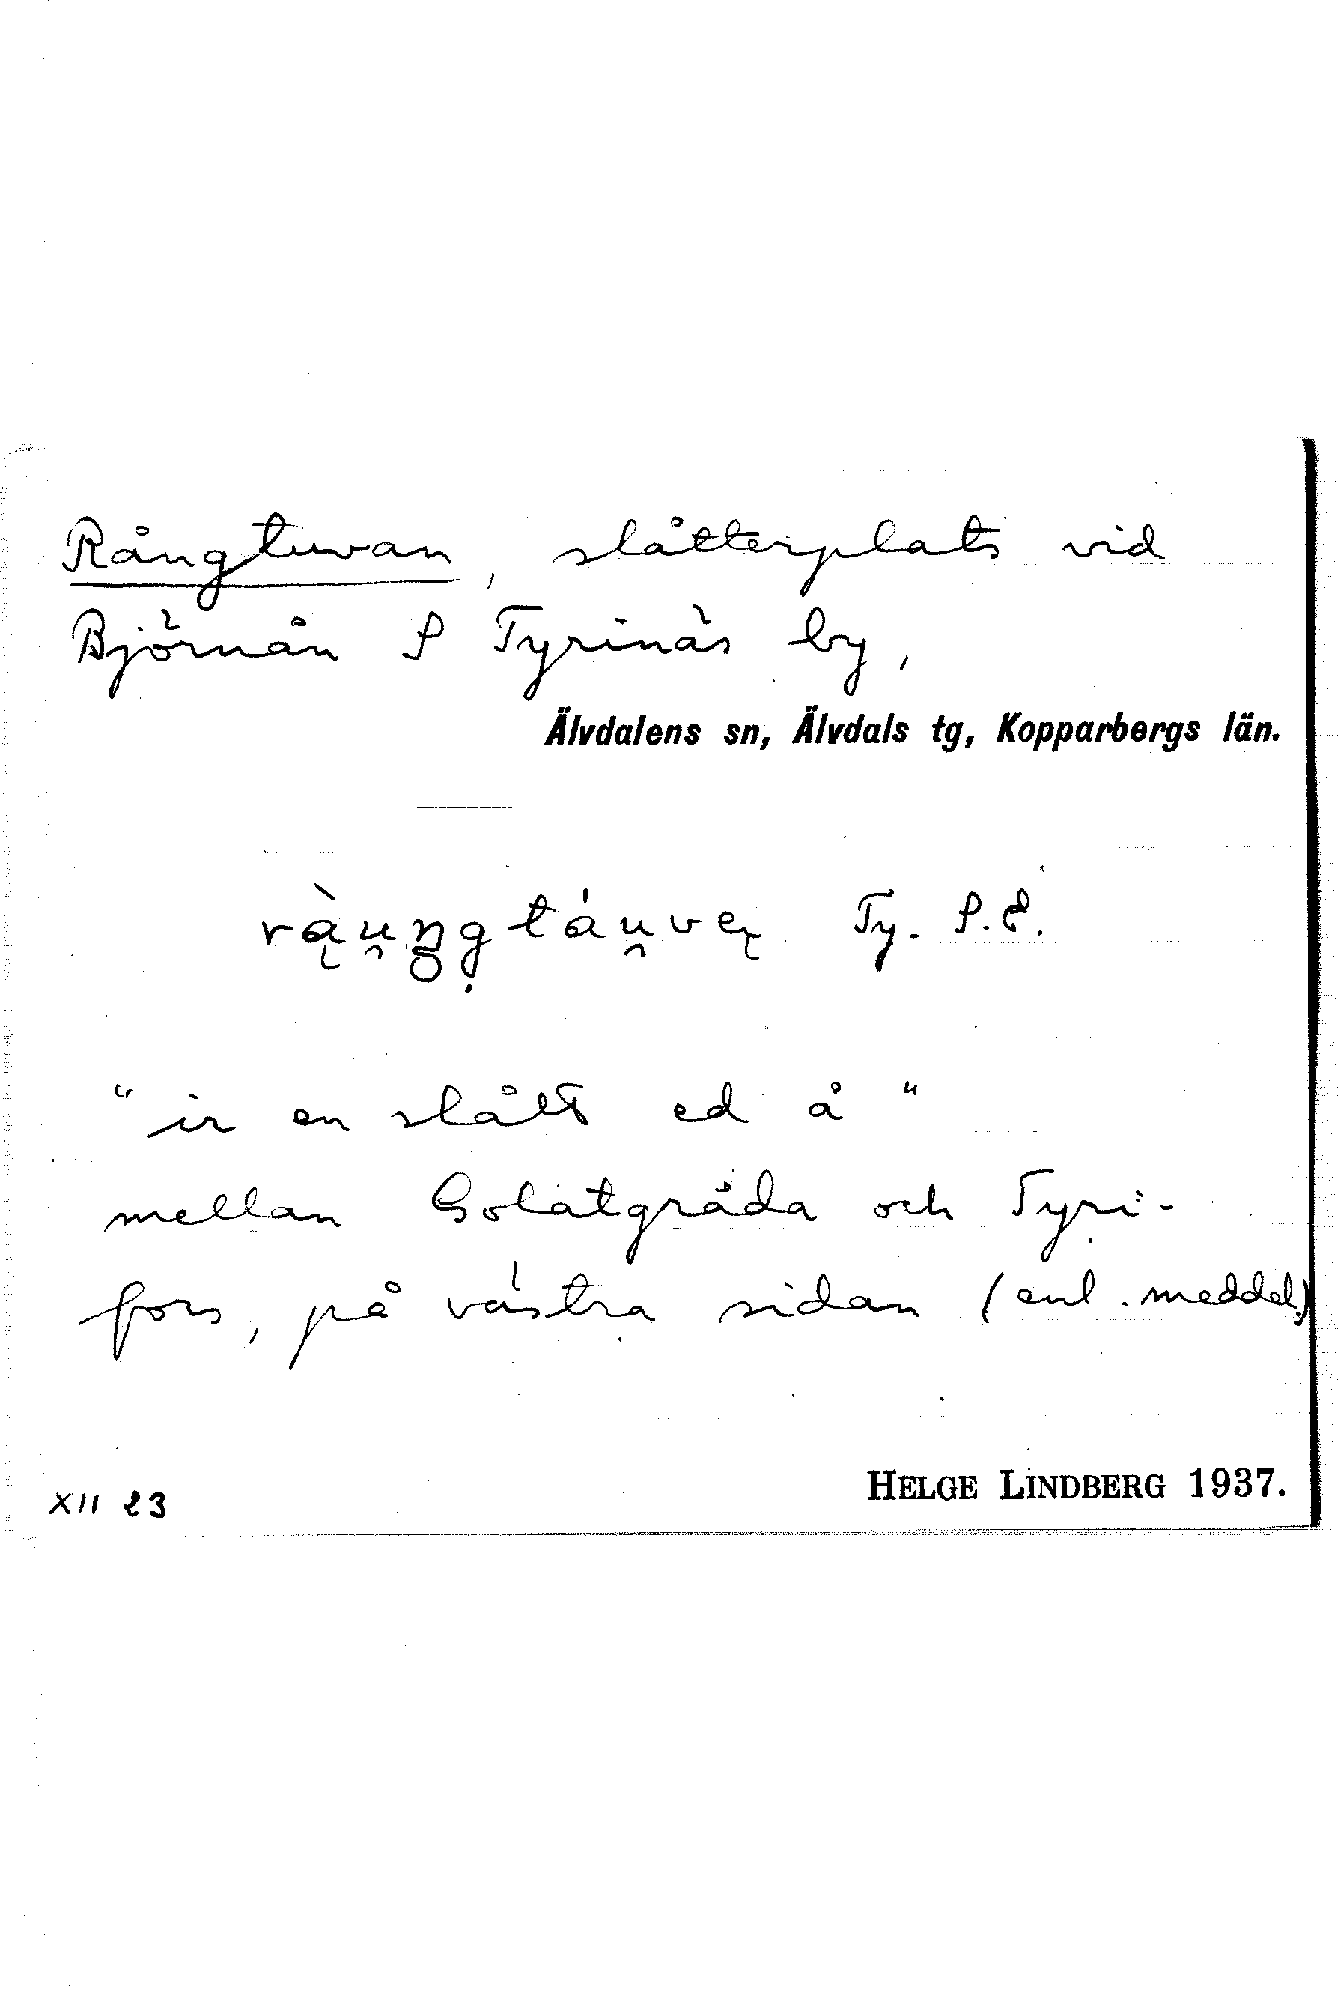 Rångtuvan, slåtterplats vid
Björnån S Tyrinäs by,
Älvdalens sn, Älvdals tg, Kopparbergs län.
rą̀u̯ŋgtáu̯vę Ty. S.E.
"ir en slått ed å"
mellan Golåtgråda och Tyri-
fors, på västra sidan (enl. meddel.)
XII 23
HELGE LINDBERG 1937.